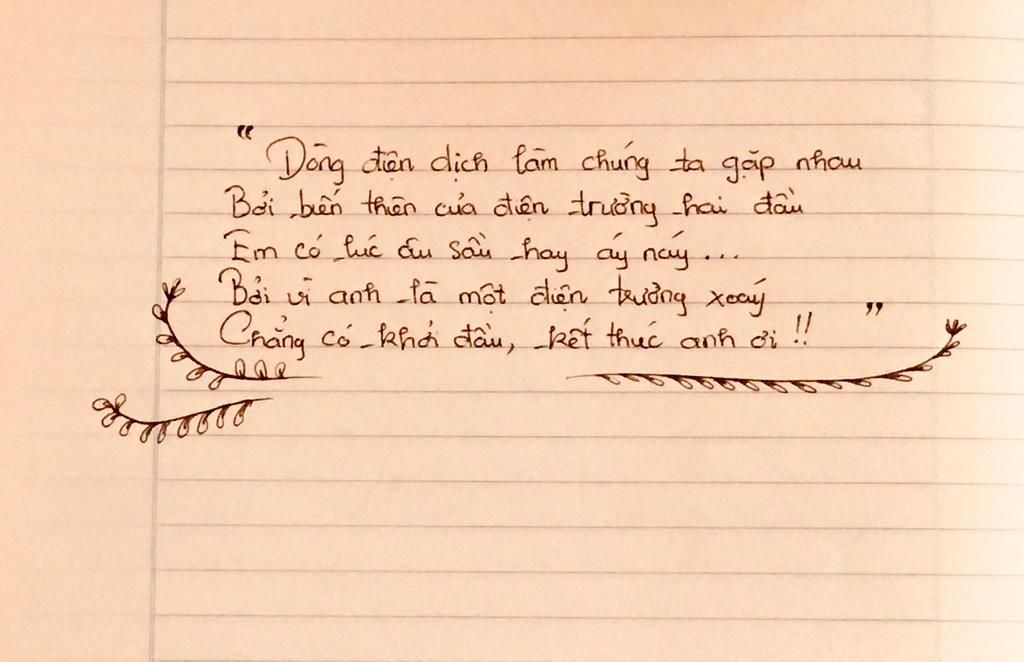 "Dòng điện dịch làm chúng ta gặp nhau
Bởi biến thiên của điện trường hai đầu
Em có lúc âu sầu hay áy náy...
Bởi vì anh là một điện trường xoáy
Chẳng có khởi đầu, kết thúc anh ơi!!"